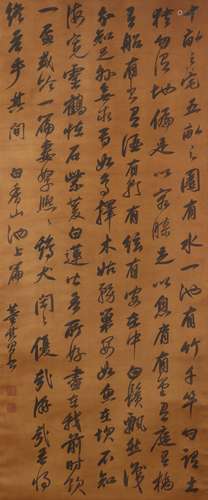 十畝之宅五畝之園有水一池有竹千竿勿謂土
狹勿謂地偏足以容膝足以息肩有堂有庭有橋
有船有書有酒有歌有弦有叟在中白鬚飄然識
分知足外無求焉如鳥擇木姑務巢安如龜在坎不知
海寬靈鶴怪石紫菱白蓮皆吾所好盡在我前時飲
一盃或吟一篇妻孥熙熙鷄犬閒閒優哉游哉吾將
終老乎其間 白香山池上篇 董其昌